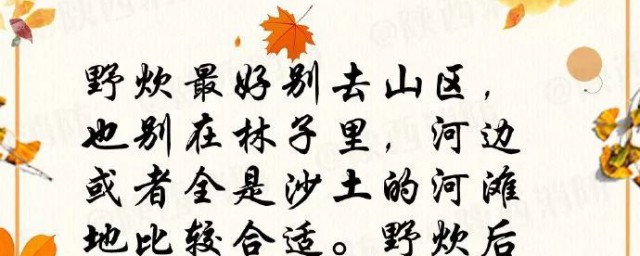 野炊最好别去山区，
也别在林子里，河边
或者全是沙土的河滩
地比较合适。野炊后